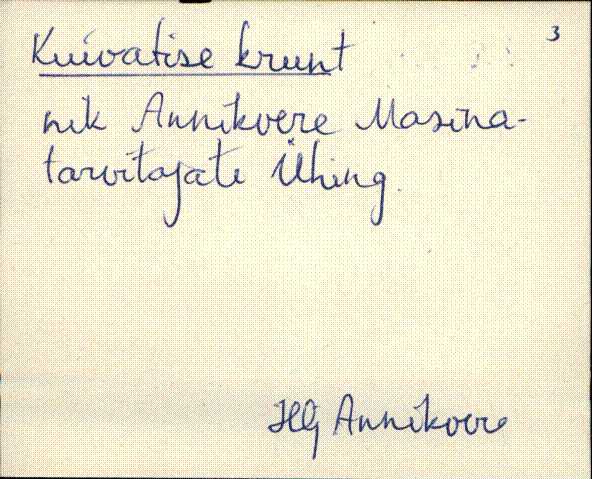 3
Kuivatise krunt
nik Annikvere Masina-
tarvitajate Ühing.
HlJ Annikvere